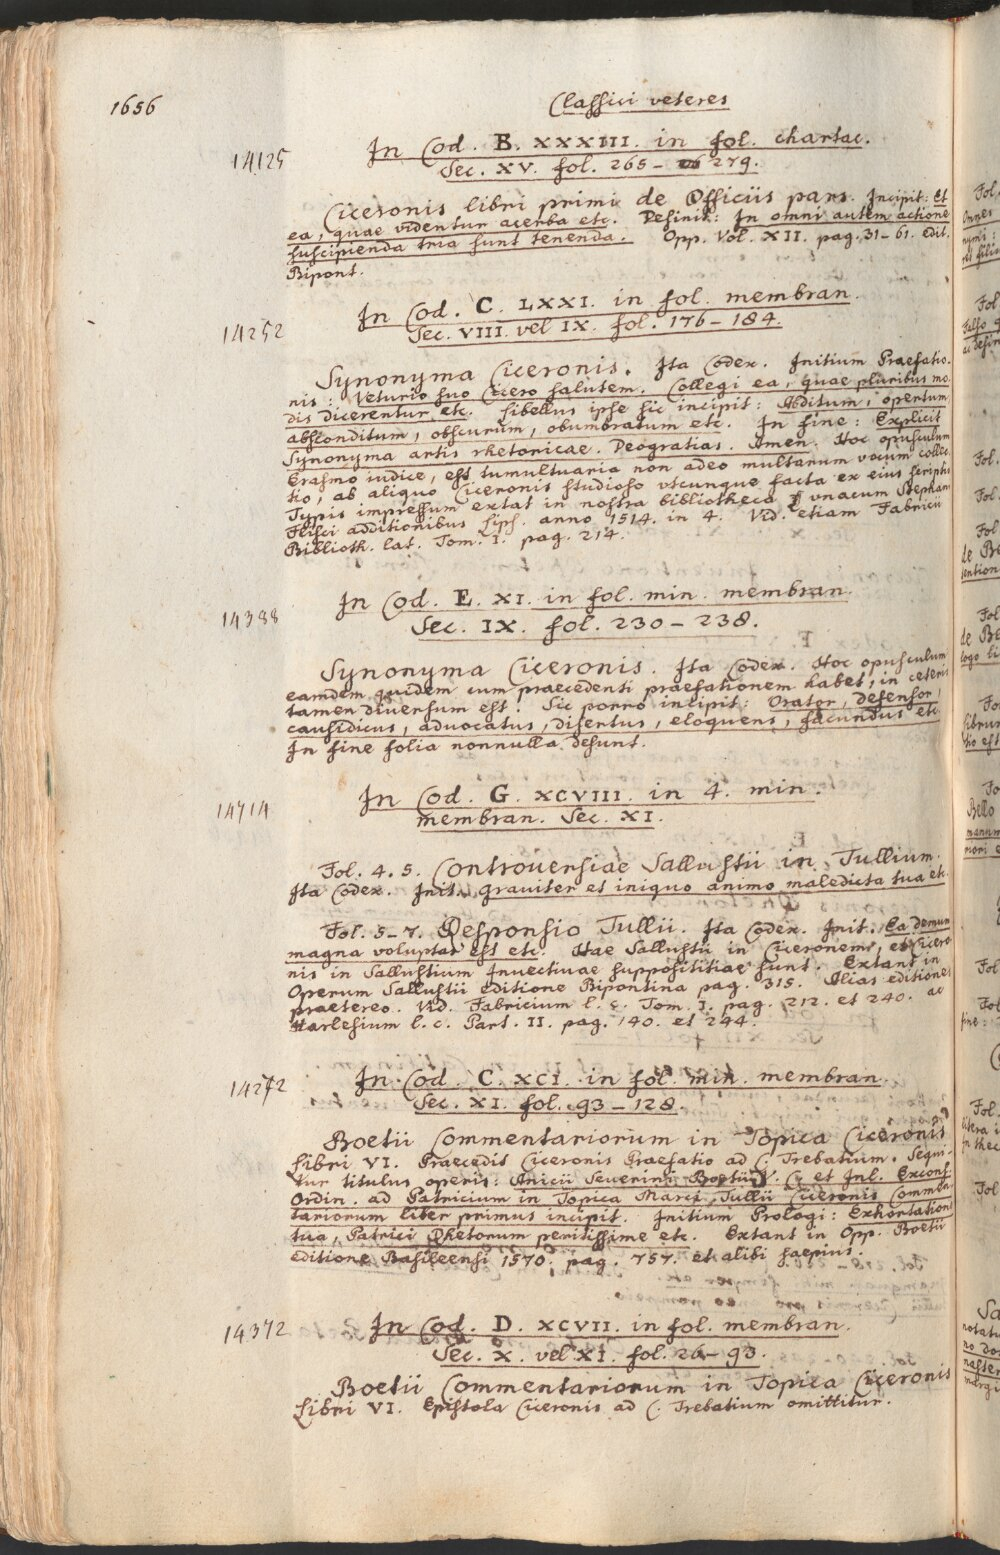 1656
Classici veteres
14125
In Cod. B. XXXIII. in fol. chartac.
Sec. XV. fol. 265 - 279.
Ciceronis libri primi de Officiis pars. Incipit: Et
ea, quae videntur acerba etc. Definit: In omni autem actione
suscipienda tria sunt tenenda. Opp. Vol. XII. pag. 31-61. edit.
Bipont.
14252
In Cod. C. LXXI. in fol. membran.
Sec. VIII. vel IX. fol. 176-184.
Synonyma Ciceronis. Ita Codex. Initium Praefatio-
nis: Veturio suo Cicero salutem. Collegi ea, quae pluribus mo-
dis dicerentur etc. Libellus ipse sic incipit: Abditum, opertum,
absconditum, obscurum, obumbratum etc. In fine: Explicit
Synonyma artis rhetoricae. Deogratias. Amen. Hoc opusculum
Erasmo iudice, est tumultuaria non adeo multarum vocum collec-
tio, ab aliquo Ciceronis studioso vtcunque facta ex eius scriptis
Typis impressum extat in nostra bibliotheca vnacum Stephani
Flisci additionibus Lips. anno 1514. in 4. Vid. etiam Fabricii
Biblioth. lat. Tom. I. pag. 214.
14388
In Cod. E. XI. in fol. min. membran.
Sec. IX. fol. 230-238.
Synonyma Ciceronis. Ita Codex. Hoc opusculum
eamdem quidem cum praecedenti praefationem habet, in ceteris
tamen diuersum est. Sic porro incipit: Orator, defensor,
causidicus, advocatus, disertus, eloquens, facundus etc.
In fine folia nonnulla desunt.
14714
In Cod. G. XCVIII. in 4. min.
membran. Sec. XI.
Fol. 4. 5. Controuersiae Sallustii in Tullium.
Ita Codex. Init. grauiter et iniquo animo maledicta tua etc.
Fol. 5-7. Responsio Tullii. Ita Codex. Init. Ea demum
magna voluptas est etc. Hae Sallustii in Ciceronem, et Cicero-
nis in Sallustium Inuectiuae supposititiae sunt. Extant in
Operum Sallustii editione Bipontina pag. 315. Alias editiones
praetereo. Vid. Fabricium l. c. Tom. I. pag. 212. et 240. ac
Harlesium l. c. Part. II. pag. 140. et 244.
14272
In Cod. C. XCI. in fol. min. membran.
Sec. XI. fol. 93-128.
Boetii Commentariorum in Topica Ciceronis
Libri VI. Praecedit Ciceronis Praefatio ad C. Trebatium. Sequi-
tur titulus operis: Anicii Severini Boetii V. C. et Inl. Excons.
Ordin. ad Patricium in Topica Marci Tullii Ciceronis Commen-
tariorum liber primus incipit. Initium Prologi: Exhortatione
tua, Patrici Rhetorum peritissime etc. Extant in Opp. Boetii
editione Basileensi 1570. pag. 757. et alibi saepius.
14372
In Cod. D. XCVII. in fol. membran.
Sec. X. vel XI. fol. 26-93.
Boetii Commentariorum in Topica Ciceronis
Libri VI. Epistola Ciceronis ad C. Trebatium omittitur.